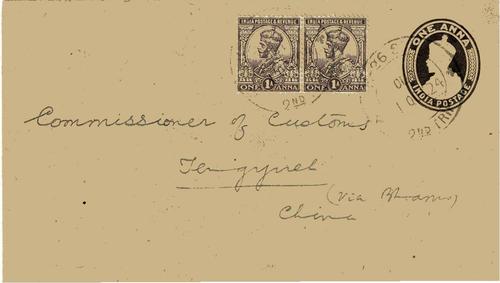 INDIA POSTAGE & REVENUE INDIA POSTAGE & REVENUE
ONE 1A ANNA ONE 1A ANNA
ONE ANNA
INDIA POSTAGE
2ND
2ND
Commissioner of Customs
Tengyueh
(via Bhamo)
China